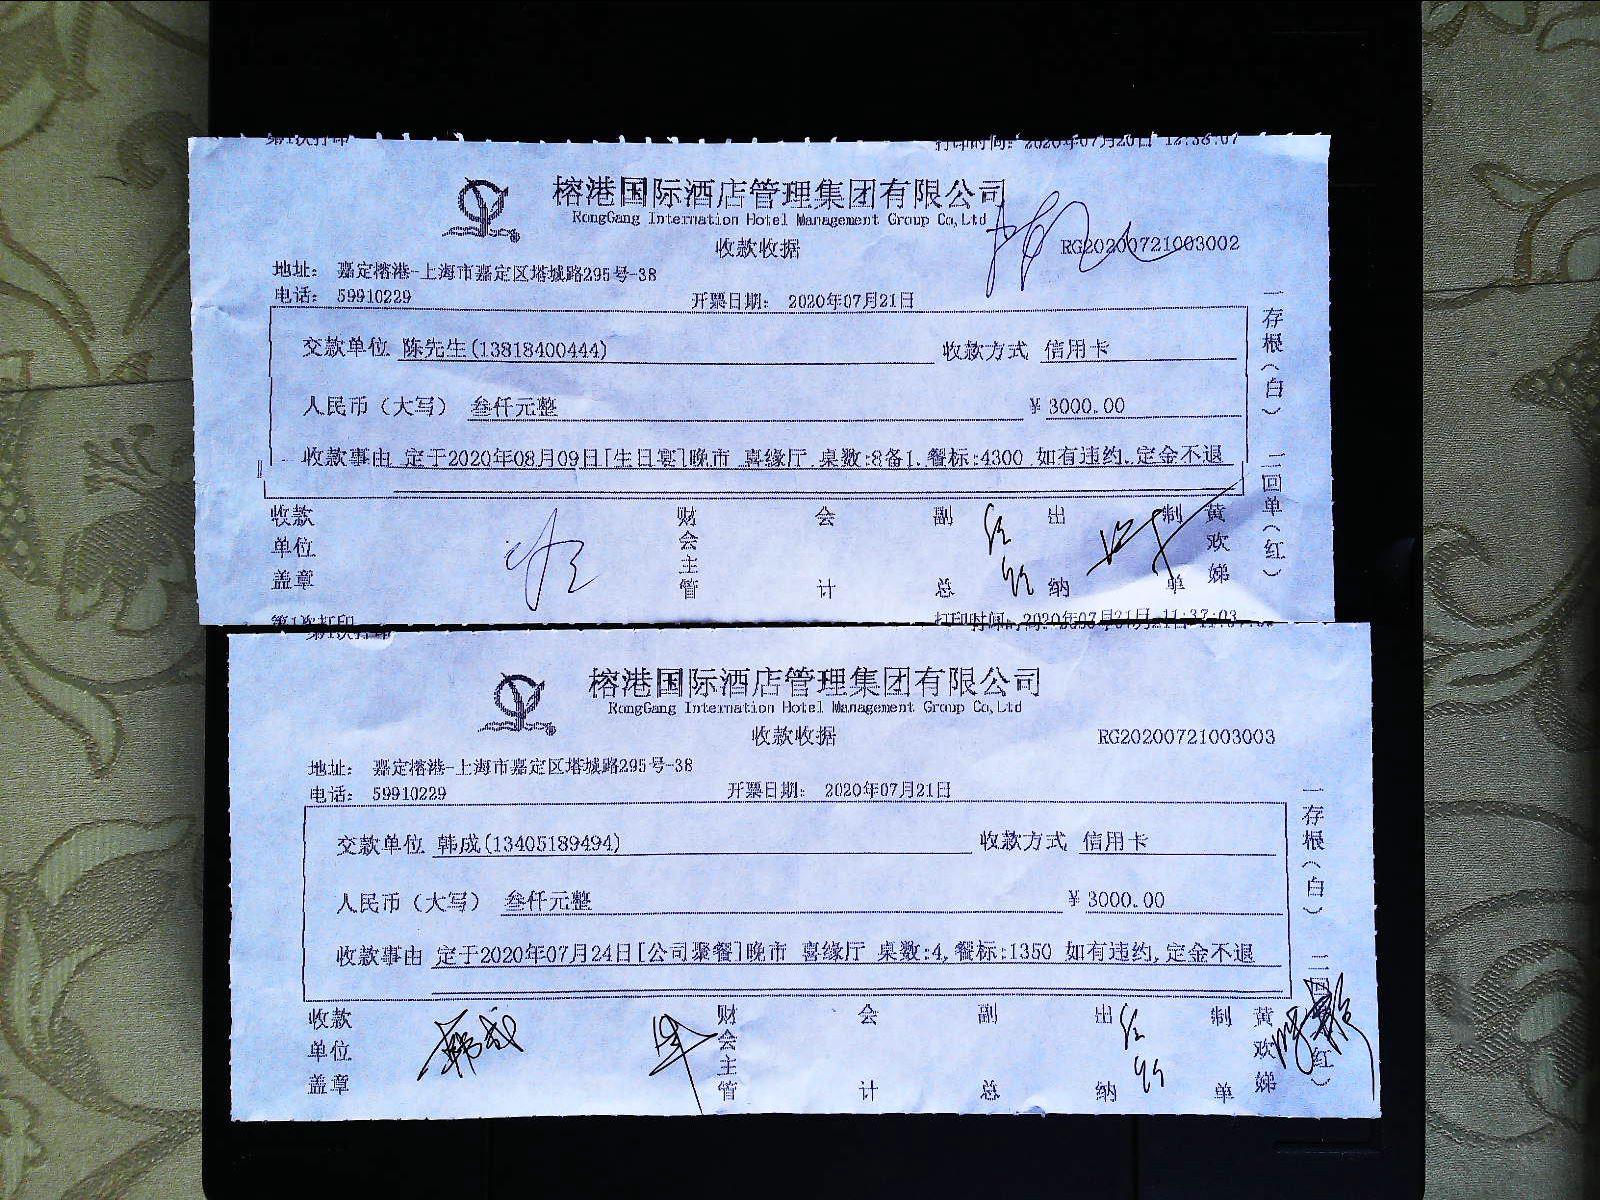 第1次打印 打印时间: 2020年07月20日 12:38:07
榕港国际酒店管理集团有限公司
RongGang Internation Hotel Management Group Co,Ltd
收款收据 RG20200721003002
地址: 嘉定榕港-上海市嘉定区塔城路295号-38
电话: 59910229 开票日期: 2020年07月21日
交款单位 陈先生(13818400444) 收款方式 信用卡
人民币（大写） 叁仟元整 ¥ 3000.00
收款事由 定于2020年08月09日[生日宴]晚市 喜缘厅 桌数:8备1,餐标:4300 如有违约,定金不退
一存根（白） 二回单（红）
收款单位盖章 财会主管 会计 副总 出纳 制单 黄欢娣
第1次打印 打印时间: 2020年07月21日 11:37:03
榕港国际酒店管理集团有限公司
RongGang Internation Hotel Management Group Co,Ltd
收款收据 RG20200721003003
地址: 嘉定榕港-上海市嘉定区塔城路295号-38
电话: 59910229 开票日期: 2020年07月21日
交款单位 韩成(13405189494) 收款方式 信用卡
人民币（大写） 叁仟元整 ¥ 3000.00
收款事由 定于2020年07月24日[公司聚餐]晚市 喜缘厅 桌数:4,餐标:1350 如有违约,定金不退
一存根（白） 二回（红）
收款单位盖章 韩成 财会主管 会计 副总 出纳 制单 黄欢娣